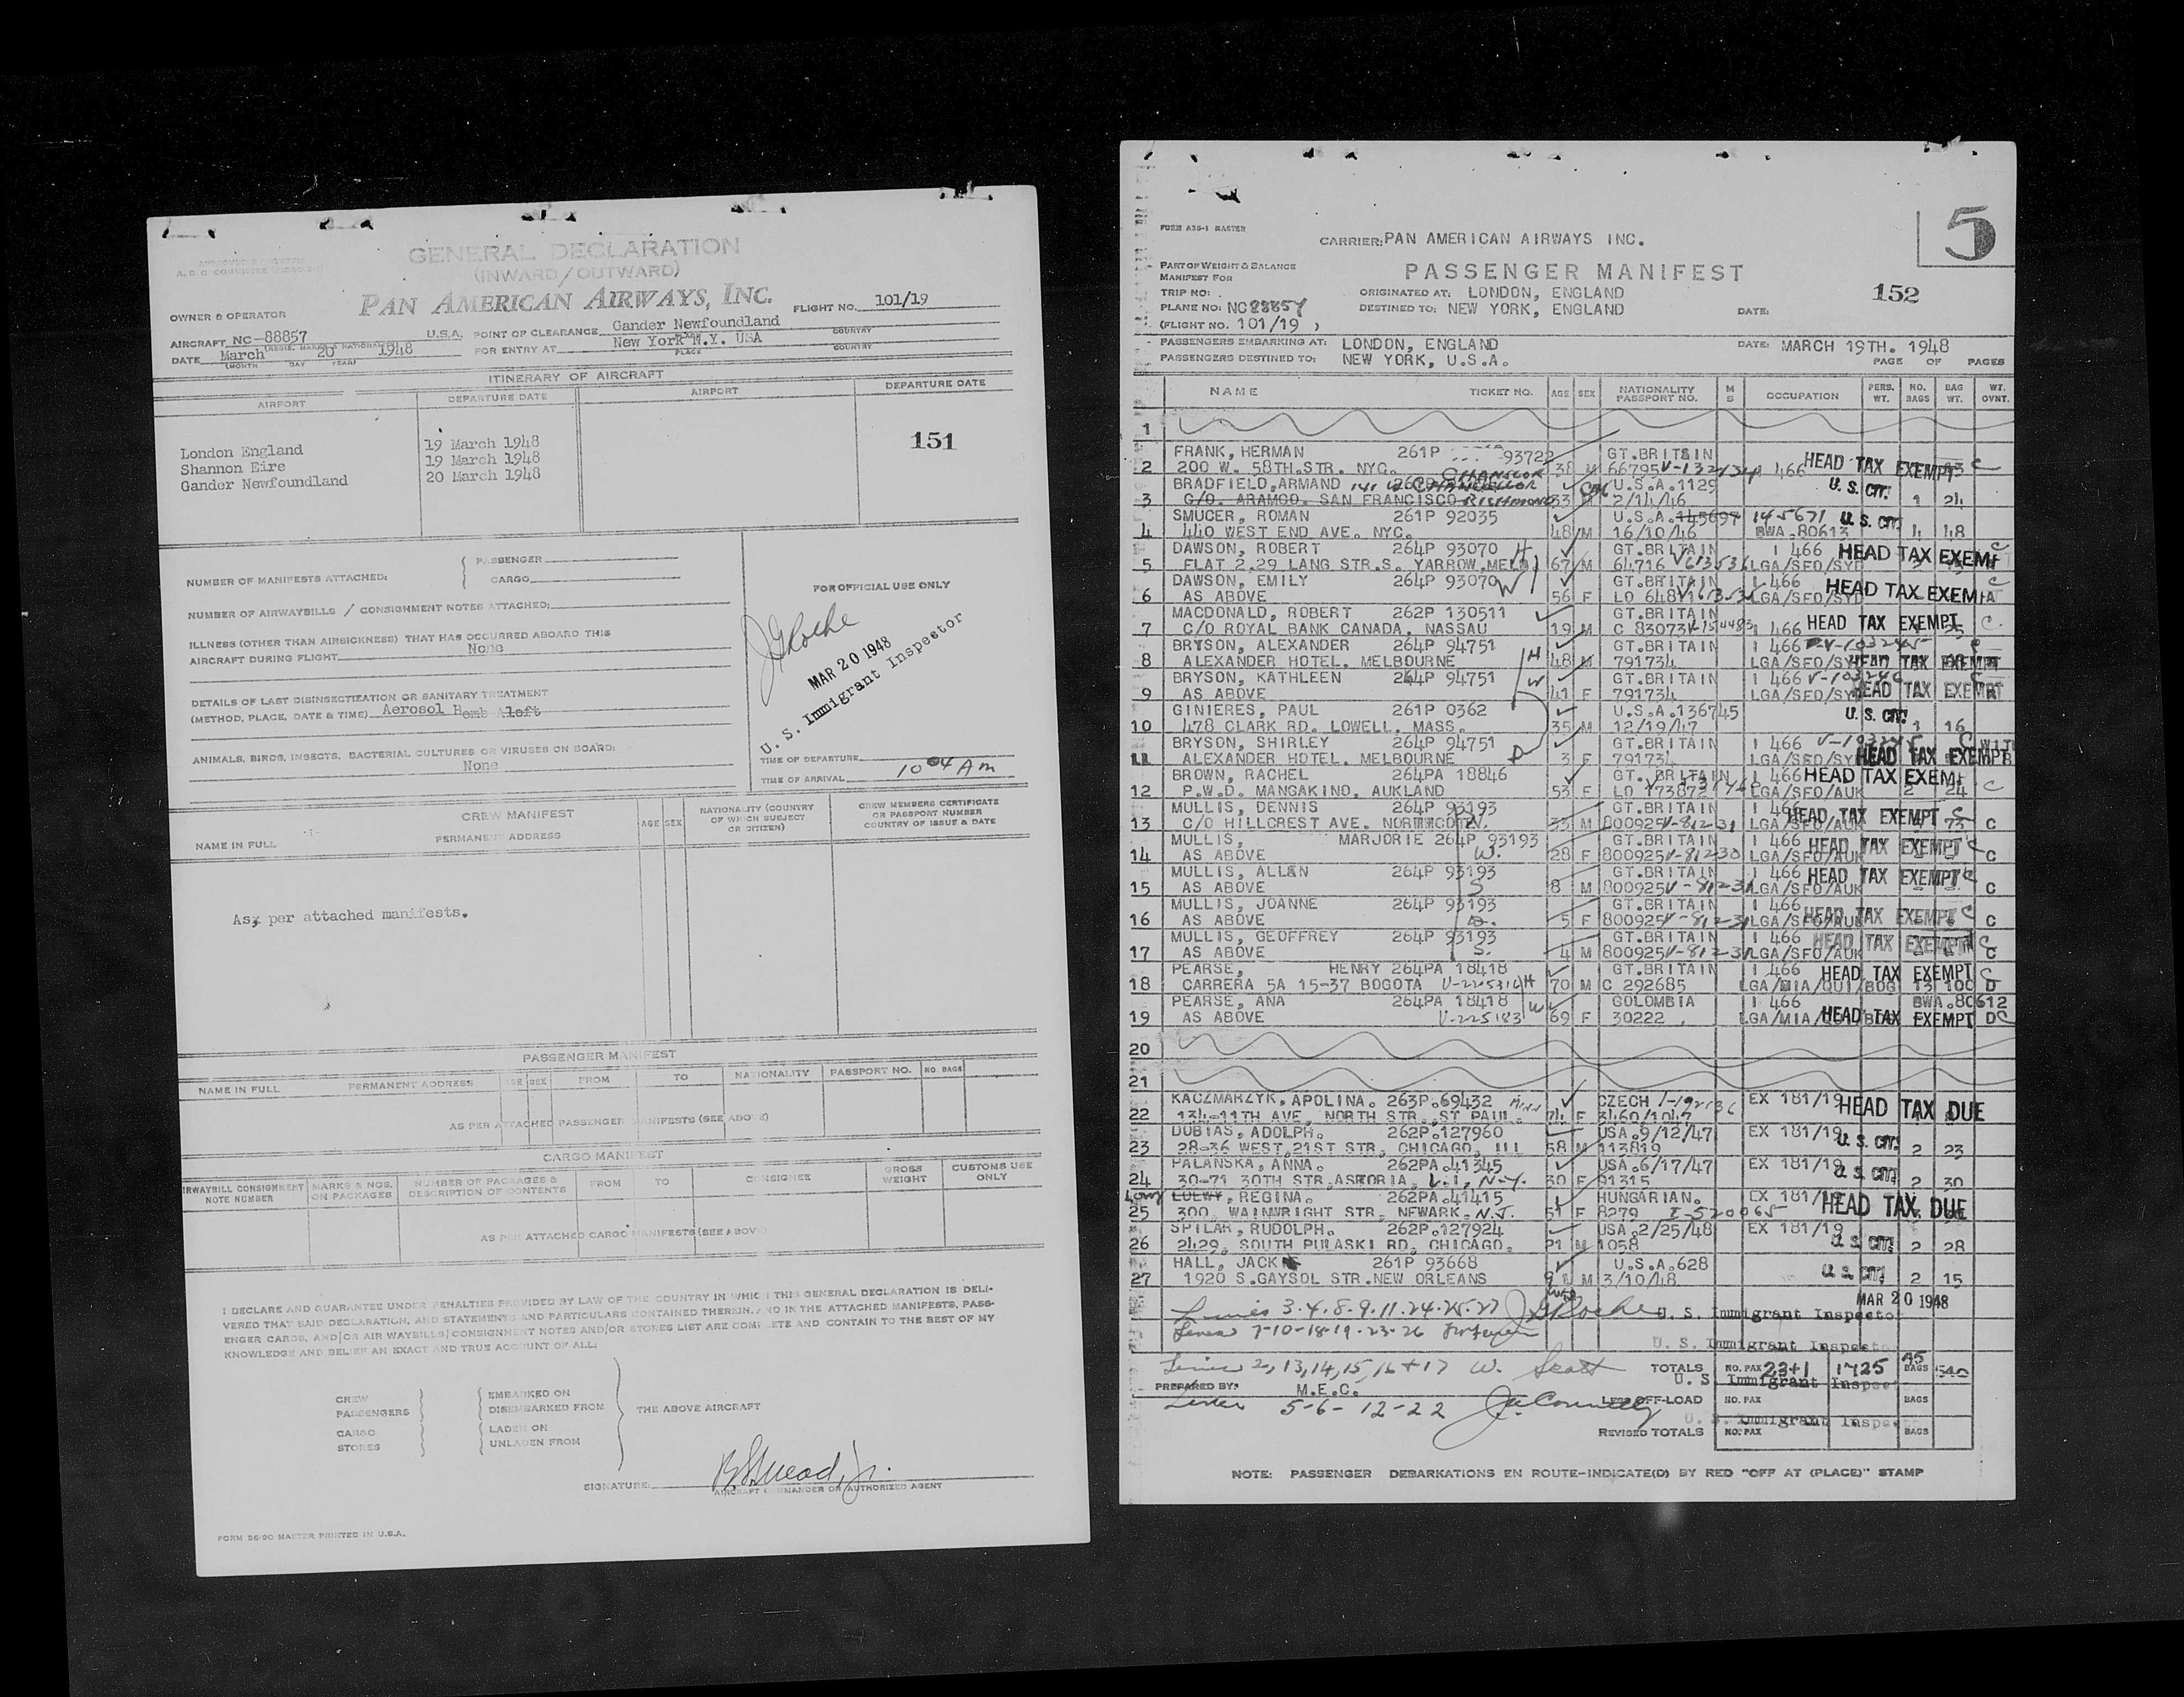 GENERAL DECLARATION
(INWARD / OUTWARD)
PAN AMERICAN AIRWAYS, INC.
FLIGHT NO. 101/19
OWNER & OPERATOR
AIRCRAFT NC-88857 U.S.A. POINT OF CLEARANCE Gander Newfoundland
COUNTRY
DATE March 20 1948 FOR ENTRY AT New York N.Y. USA
(MONTH DAY YEAR) PLACE COUNTRY
ITINERARY OF AIRCRAFT
AIRPORT DEPARTURE DATE AIRPORT DEPARTURE DATE
151
London England 19 March 1948
Shannon Eire 19 March 1948
Gander Newfoundland 20 March 1948
NUMBER OF MANIFESTS ATTACHED: PASSENGER
CARGO
NUMBER OF AIRWAYBILLS / CONSIGNMENT NOTES ATTACHED:
ILLNESS (OTHER THAN AIRSICKNESS) THAT HAS OCCURRED ABOARD THIS
AIRCRAFT DURING FLIGHT None
DETAILS OF LAST DISINSECTIZATION OR SANITARY TREATMENT
(METHOD, PLACE, DATE & TIME) Aerosol Bomb Aloft
ANIMALS, BIRDS, INSECTS, BACTERIAL CULTURES OR VIRUSES ON BOARD:
None
FOR OFFICIAL USE ONLY
J G Roche
MAR 20 1948
U. S. Immigrant Inspector
TIME OF DEPARTURE
TIME OF ARRIVAL 10 04 AM
CREW MANIFEST
NAME IN FULL PERMANENT ADDRESS AGE SEX NATIONALITY (COUNTRY OF WHICH SUBJECT OR CITIZEN) CREW MEMBERS CERTIFICATE OR PASSPORT NUMBER COUNTRY OF ISSUE & DATE
As per attached manifests.
PASSENGER MANIFEST
NAME IN FULL PERMANENT ADDRESS AGE SEX FROM TO NATIONALITY PASSPORT NO. NO. BAGS
AS PER ATTACHED PASSENGER MANIFESTS (SEE ABOVE)
CARGO MANIFEST
AIRWAYBILL CONSIGNMENT NOTE NUMBER MARKS & NOS. ON PACKAGES NUMBER OF PACKAGES & DESCRIPTION OF CONTENTS FROM TO CONSIGNEE GROSS WEIGHT CUSTOMS USE ONLY
AS PER ATTACHED CARGO MANIFESTS (SEE ABOVE)
I DECLARE AND GUARANTEE UNDER PENALTIES PROVIDED BY LAW OF THE COUNTRY IN WHICH THIS GENERAL DECLARATION IS DELI-
VERED THAT SAID DECLARATION, AND STATEMENTS AND PARTICULARS CONTAINED THEREIN, AND IN THE ATTACHED MANIFESTS, PASS-
ENGER CARGS, AND/OR AIR WAYBILLS/CONSIGNMENT NOTES AND/OR STORES LIST ARE COMPLETE AND CONTAIN TO THE BEST OF MY
KNOWLEDGE AND BELIEF AN EXACT AND TRUE ACCOUNT OF ALL:
CREW EMBARKED ON
PASSENGERS DISEMBARKED FROM THE ABOVE AIRCRAFT
CARGO LADEN ON
STORES UNLADEN FROM
SIGNATURE:
AIRCRAFT COMMANDER OR AUTHORIZED AGENT
FORM 56-90 MASTER PRINTED IN U.S.A.
5
FORM A36-1 MASTER
CARRIER: PAN AMERICAN AIRWAYS INC.
PART OF WEIGHT & BALANCE
MANIFEST FOR
PASSENGER MANIFEST
152
TRIP NO: ORIGINATED AT: LONDON, ENGLAND
PLANE NO: NC88857 DESTINED TO: NEW YORK, ENGLAND DATE:
(FLIGHT NO. 101/19 )
PASSENGERS EMBARKING AT: LONDON, ENGLAND DATE: MARCH 19TH. 1948
PASSENGERS DESTINED TO: NEW YORK, U.S.A. PAGE OF PAGES
NAME TICKET NO. AGE SEX NATIONALITY PASSPORT NO. M S OCCUPATION PERS. WT. NO. BAGS BAG WT. WT. OVNT.
1
FRANK, HERMAN 261P 93722 GT.BRITAIN HEAD TAX EXEMPT C
2 200 W. 58TH.STR. NYC. 38 M 66795 466
BRADFIELD, ARMAND U.S.A.1129 U.S. CIT.
3 C/O. ARAMCO. SAN FRANCISCO RICHMOND 33 2/14/46 1 24
SMUCER, ROMAN 261P 92035 U.S.A. 145671 U.S. CIT.
4 440 WEST END AVE. NYC. 48 M 16/10/46 BWA.80613 48
DAWSON, ROBERT 264P 93070 H GT.BRITAIN 1 466 HEAD TAX EXEMPT C
5 FLAT 2.29 LANG STR.S. YARROW.MELB 67 M 64716 LGA/SFO/SYD
DAWSON, EMILY 264P 93070 W GT.BRITAIN 1 466 HEAD TAX EXEMPT C
6 AS ABOVE 56 F LO LGA/SFO/SYD
MACDONALD, ROBERT 262P 130511 GT.BRITAIN HEAD TAX EXEMPT C
7 C/O ROYAL BANK CANADA. NASSAU 19 M C 83073 466 25
BRYSON, ALEXANDER 264P 94751 H GT.BRITAIN 1 466
8 ALEXANDER HOTEL. MELBOURNE 48 M 791734 LGA/SFO/SYD HEAD TAX EXEMPT
BRYSON, KATHLEEN 264P 94751 W GT.BRITAIN 1 466
9 AS ABOVE 41 F 791734 LGA/SFO/SYD HEAD TAX EXEMPT
GINIERES, PAUL 261P 0362 U.S.A.136745 U.S. CIT.
10 478 CLARK RD. LOWELL. MASS. 35 M 12/19/47 1 16
BRYSON, SHIRLEY 264P 94751 GT.BRITAIN 1 466
11 ALEXANDER HOTEL. MELBOURNE D 3 F 791734 LGA/SFO/SYD HEAD TAX EXEMPT
BROWN, RACHEL 264PA 18846 GT. BRITAIN 1 466 HEAD TAX EXEMPT
12 P.W.D. MANGAKINO, AUKLAND 53 F LO 173872 LGA/SFO/AUK 2 24 C
MULLIS, DENNIS 264P 93193 GT.BRITAIN 1 466 HEAD TAX EXEMPT C
13 C/O HILLCREST AVE. NORTHCOTE 33 M 800925 V-81231 LGA/SFO/AUK 73 C
MULLIS, MARJORIE 264P 93193 GT.BRITAIN 1 466 HEAD TAX EXEMPT C
14 AS ABOVE W. 28 F 800925 V-81230 LGA/SFO/AUK C
MULLIS, ALLEN 264P 93193 GT.BRITAIN 1 466 HEAD TAX EXEMPT C
15 AS ABOVE S 8 M 800925 V-81231 LGA/SFO/AUK C
MULLIS, JOANNE 264P 93193 GT.BRITAIN 1 466 HEAD TAX EXEMPT C
16 AS ABOVE D. 5 F 800925 V-81231 LGA/SFO/AUK C
MULLIS, GEOFFREY 264P 93193 GT.BRITAIN 1 466 HEAD TAX EXEMPT C
17 AS ABOVE S. 4 M 800925 V-81231 LGA/SFO/AUK C
PEARSE, HENRY 264PA 18418 GT.BRITAIN 1 466 HEAD TAX EXEMPT C
18 CARRERA 5A 15-37 BOGOTA H 70 M C 292685 LGA/MIA/QUI/BOG 13 100 D
PEARSE, ANA 264PA 18418 W COLOMBIA 1 466 BWA.80612
19 AS ABOVE V-225183 69 F 30222 LGA/MIA/QUI/BOG HEAD TAX EXEMPT DC
20
21
KACZMARZYK, APOLINA. 263P.69432 Minn CZECH EX 181/19 HEAD TAX DUE
22 134-11TH AVE. NORTH STR. ST PAUL. 74 F 3460/1947
DOBIAS, ADOLPH. 262P.127960 USA.9/12/47 EX 181/19 U.S. CIT.
23 28-36 WEST.21ST STR. CHICAGO. ILL 58 M 113819 2 23
PALANSKA, ANNA. 262PA.41345 USA.6/17/47 EX 181/19 U.S. CIT.
24 30-71 30TH STR.ASTORIA. L.I., N.Y. 30 F 91315 2 30
Lowy LOEWY, REGINA. 262PA.41415 HUNGARIAN. EX 181/19 HEAD TAX DUE
25 300. WAINWRIGHT STR. NEWARK. N.J. 51 F 8279 I-520065
SPILAR, RUDOLPH. 262P.127924 USA.2/25/48 EX 181/19 U.S. CIT.
26 2429. SOUTH PULASKI RD. CHICAGO. 21 M 1058 2 28
HALL, JACK 261P 93668 U.S.A.628 U.S. CIT.
27 1920 S.GAYSOL STR.NEW ORLEANS M 3/10/48 2 15
MAR 20 1948
Lines 3.4.8.9.11.24.25.27 J G Roche U. S. Immigrant Inspector
Lines 7-10-18-19-23-26
U. S. Immigrant Inspector
Lines 2, 13, 14, 15, 16 + 17 W. Scott TOTALS NO. PAX 23+1 1725 BAGS 45 540
U. S. Immigrant Inspector
PREPARED BY: M.E.C.
Lines 5-6-12-22 LESS OFF-LOAD NO. PAX BAGS
U. S. Immigrant Inspector
REVISED TOTALS NO. PAX BAGS
NOTE: PASSENGER DEBARKATIONS EN ROUTE-INDICATE(D) BY RED "OFF AT (PLACE)" STAMP